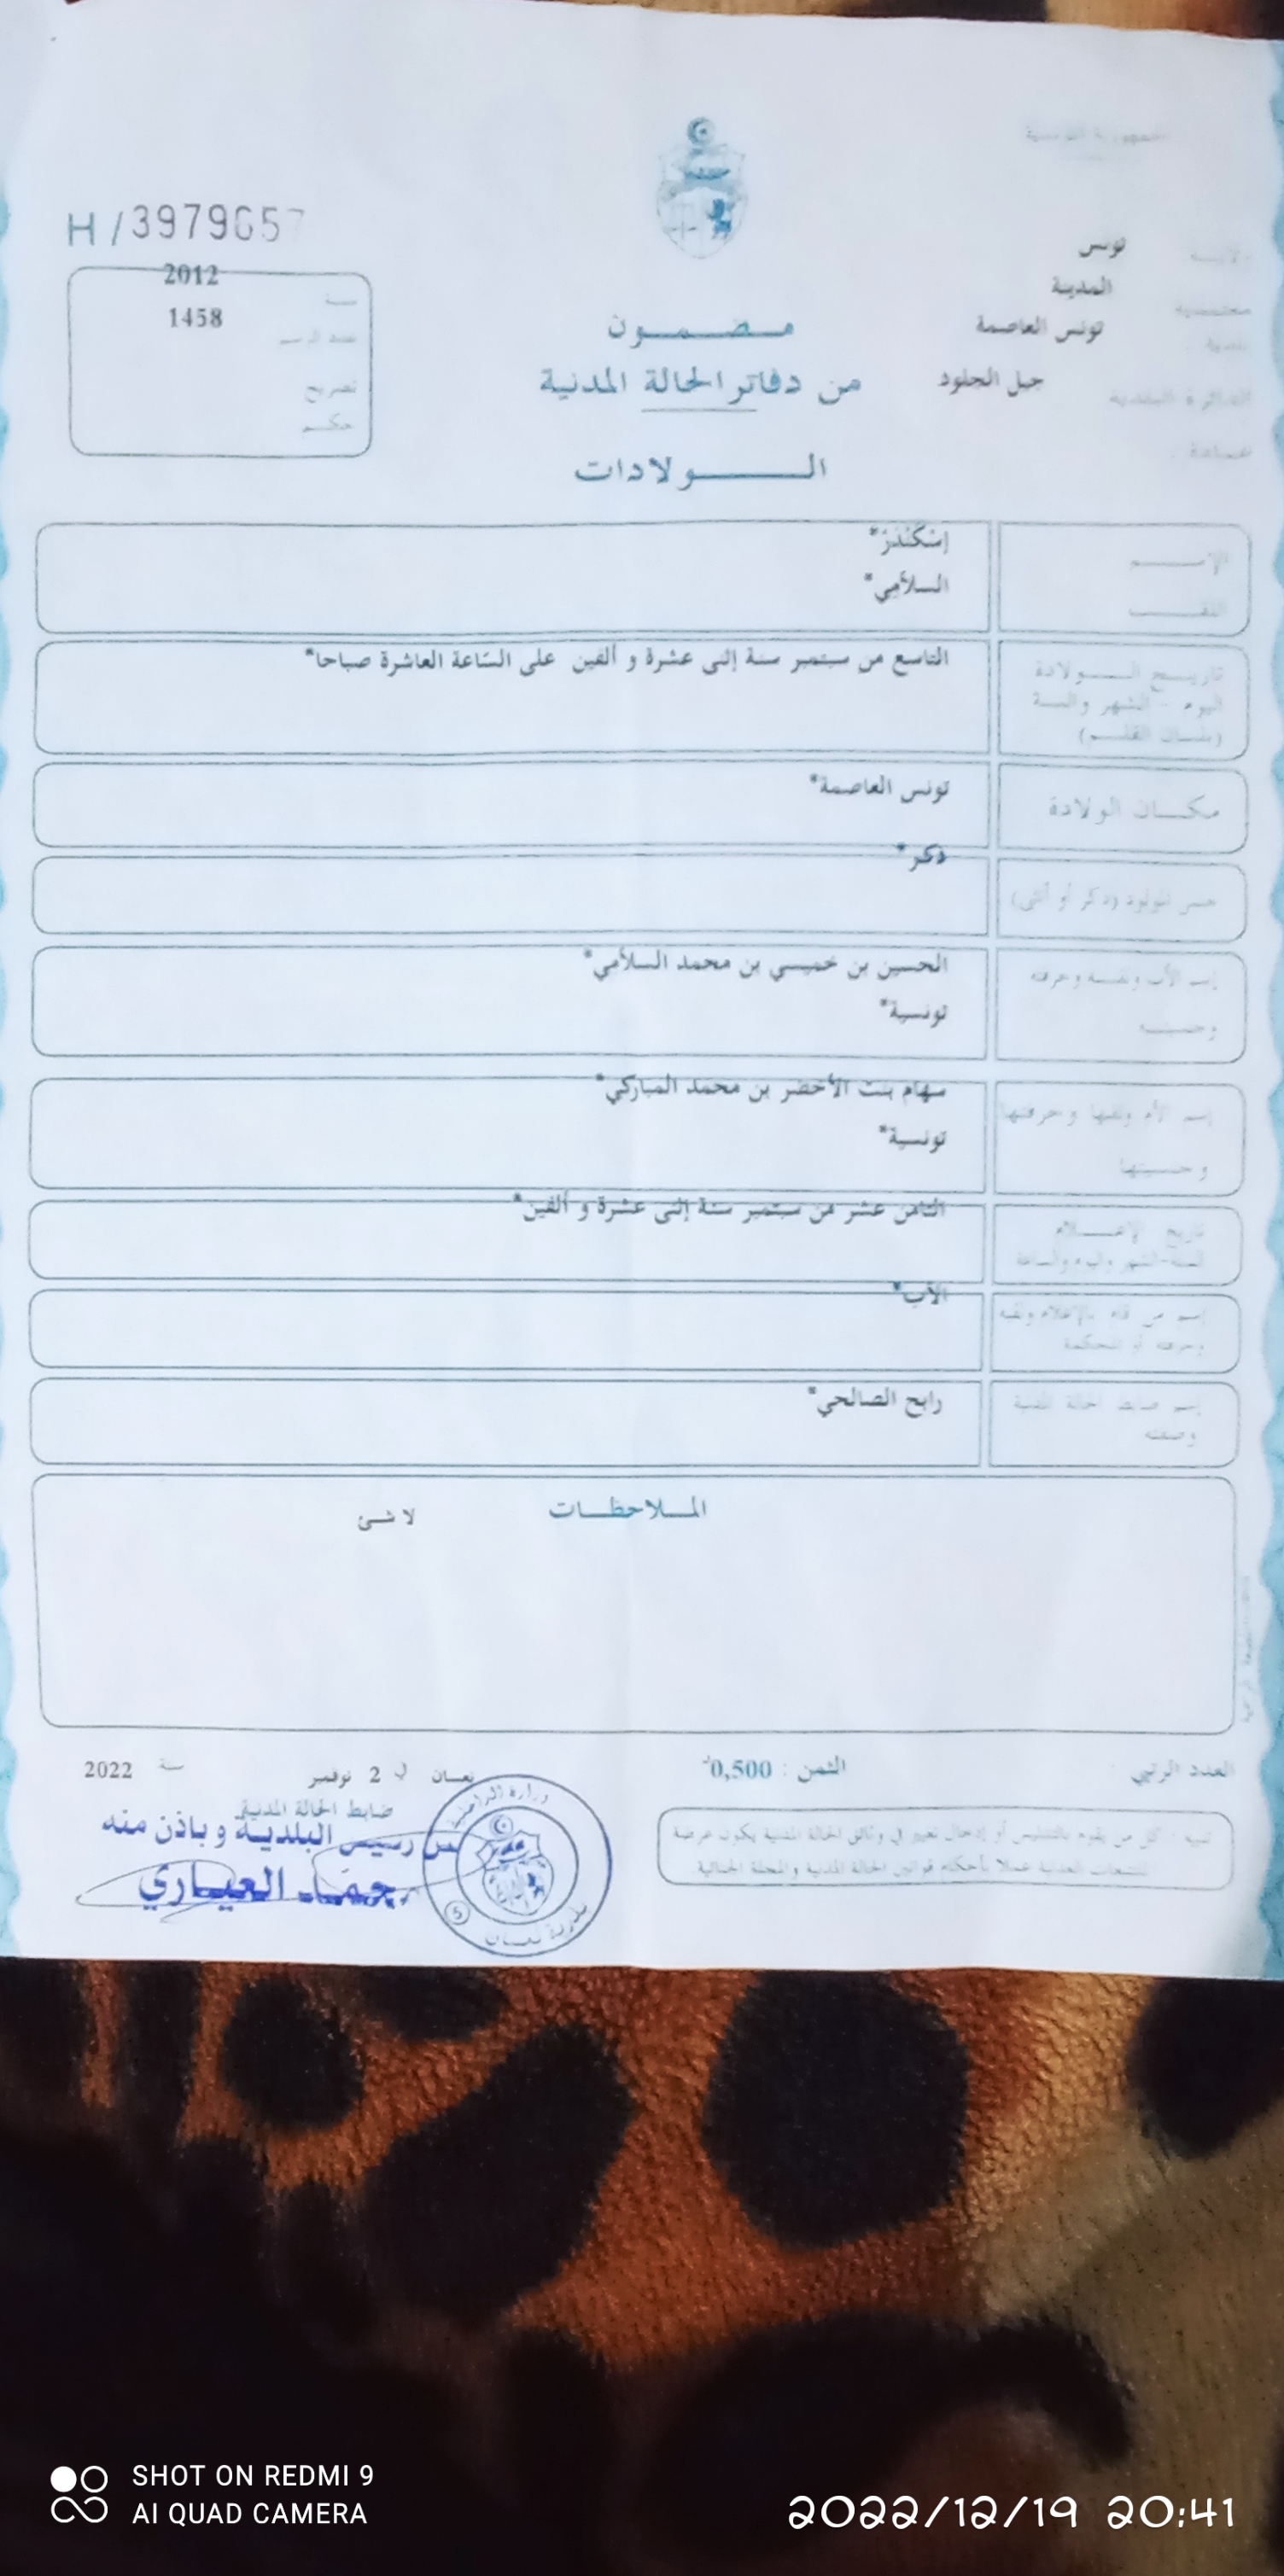 الجمهورية التونسية
H / 3979657
2012
سنة
1458
عدد الرسم
تصريح
حكم
تونس
المدينة
معتمدية
تونس العاصمة
بلدية
جبل الجلود
الدائرة البلدية
عمادة
مضمون
من دفاتر الحالة المدنية
الولادات
الإسم
إسْكَنْدَرْ*
اللقب
السلاّمِي*
تاريخ الولادة
اليوم - الشهر والسنة
(بلسان القلم)
التاسع من سبتمبر سنة إثنى عشرة و ألفين على السّاعة العاشرة صباحا*
مكان الولادة
تونس العاصمة*
جنس المولود (ذكر أو أنثى)
ذكر*
إسم الأب ولقبه وحرفته
وجنسيته
الحسين بن خميسي بن محمد السلاّمي*
تونسية*
إسم الأم ولقبها وحرفتها
وجنسيتها
سهام بنت الأخضر بن محمد المباركي*
تونسية*
تاريخ الإعلام
السنة-الشهر واليوم والساعة
الثامن عشر من سبتمبر سنة إثنى عشرة و ألفين*
إسم من قام بالإعلام ولقبه
وحرفته أو المحكمة
الأب*
إسم ضابط الحالة المدنية
وصفته
رابح الصالحي*
الملاحظات
لا شئ
العدد الرتبي :
الثمن : 0,500د
نعسان في 2 نوفمبر سنة 2022
ضابط الحالة المدنية
رئيس البلدية وباذن منه
العياري
وزارة الداخلية
بلدية نعسان
5
تنبيه : كل من يقوم بالتدليس أو إدخال تغيير في وثائق الحالة المدنية يكون عرضة
للتتبعات العدلية عملا بأحكام قوانين الحالة المدنية والمجلة الجنائية
SHOT ON REDMI 9
AI QUAD CAMERA
2022/12/19 20:41